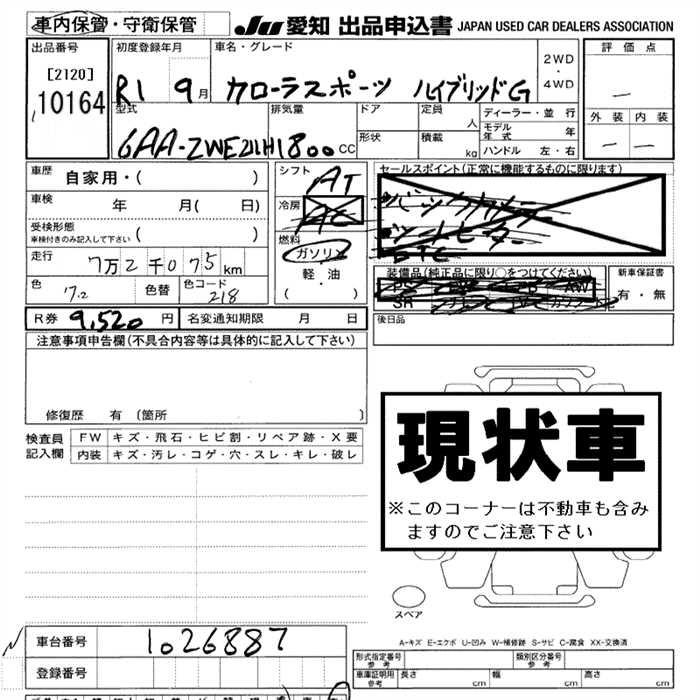 車内保管・守衛保管
JU 愛知 出品申込書 JAPAN USED CAR DEALERS ASSOCIATION
出品番号
[2120]
10164
初度登録年月
R1 9月
車名・グレード
カローラスポーツ ハイブリッドG
2WD
・
4WD
評価点
—
外装 内装
— —
型式
6AA-ZWE211H
排気量
1800cc
ドア
形状
定員
人
積載
kg
ディーラー・並行
モデル年式 年
ハンドル 左・右
車歴
自家用・( )
車検
年 月( 日)
受検形態
車検付きのみ記入して下さい ( )
走行
7万2千075km
色
色替
色コード
218
シフト
AT
冷房
AC
燃料
ガソリン
軽・油
( )
セールスポイント(正常に機能するものに限ります)
バックカメラー
シートヒーター
ETC
装備品(純正品に限り○をつけてください)
PS PW AB AW
SR ナビ TV カワシート
新車保証書
有・無
後日品
R券 9,520円
名変通知期限 月 日
注意事項申告欄(不具合内容等は具体的に記入して下さい)
修復歴 有 (箇所 )
検査員記入欄
FW キズ・飛石・ヒビ割・リペア跡・X要
内装 キズ・汚レ・コゲ・穴・スレ・キレ・破レ
現状車
※このコーナーは不動車も含み
ますのでご注意下さい
スペア
車台番号 1026887
登録番号
A-キズ E-エクボ U-凹み W-補修跡 S-サビ C-腐食 XX-交換済
形式指定番号
参考
類別区分番号
参考
車庫証明用
参考
長さ cm
幅 cm
高さ cm